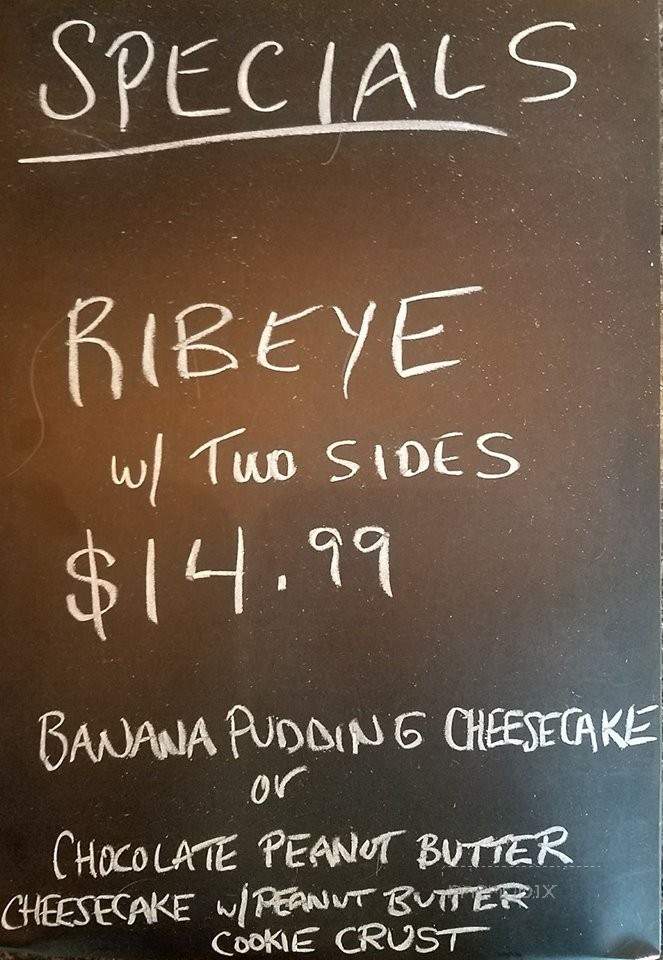 SPECIALS
RIBEYE
w/ TWO SIDES
$14.99
BANANA PUDDING CHEESECAKE
or
CHOCOLATE PEANUT BUTTER
CHEESECAKE w/PEANUT BUTTER
COOKIE CRUST